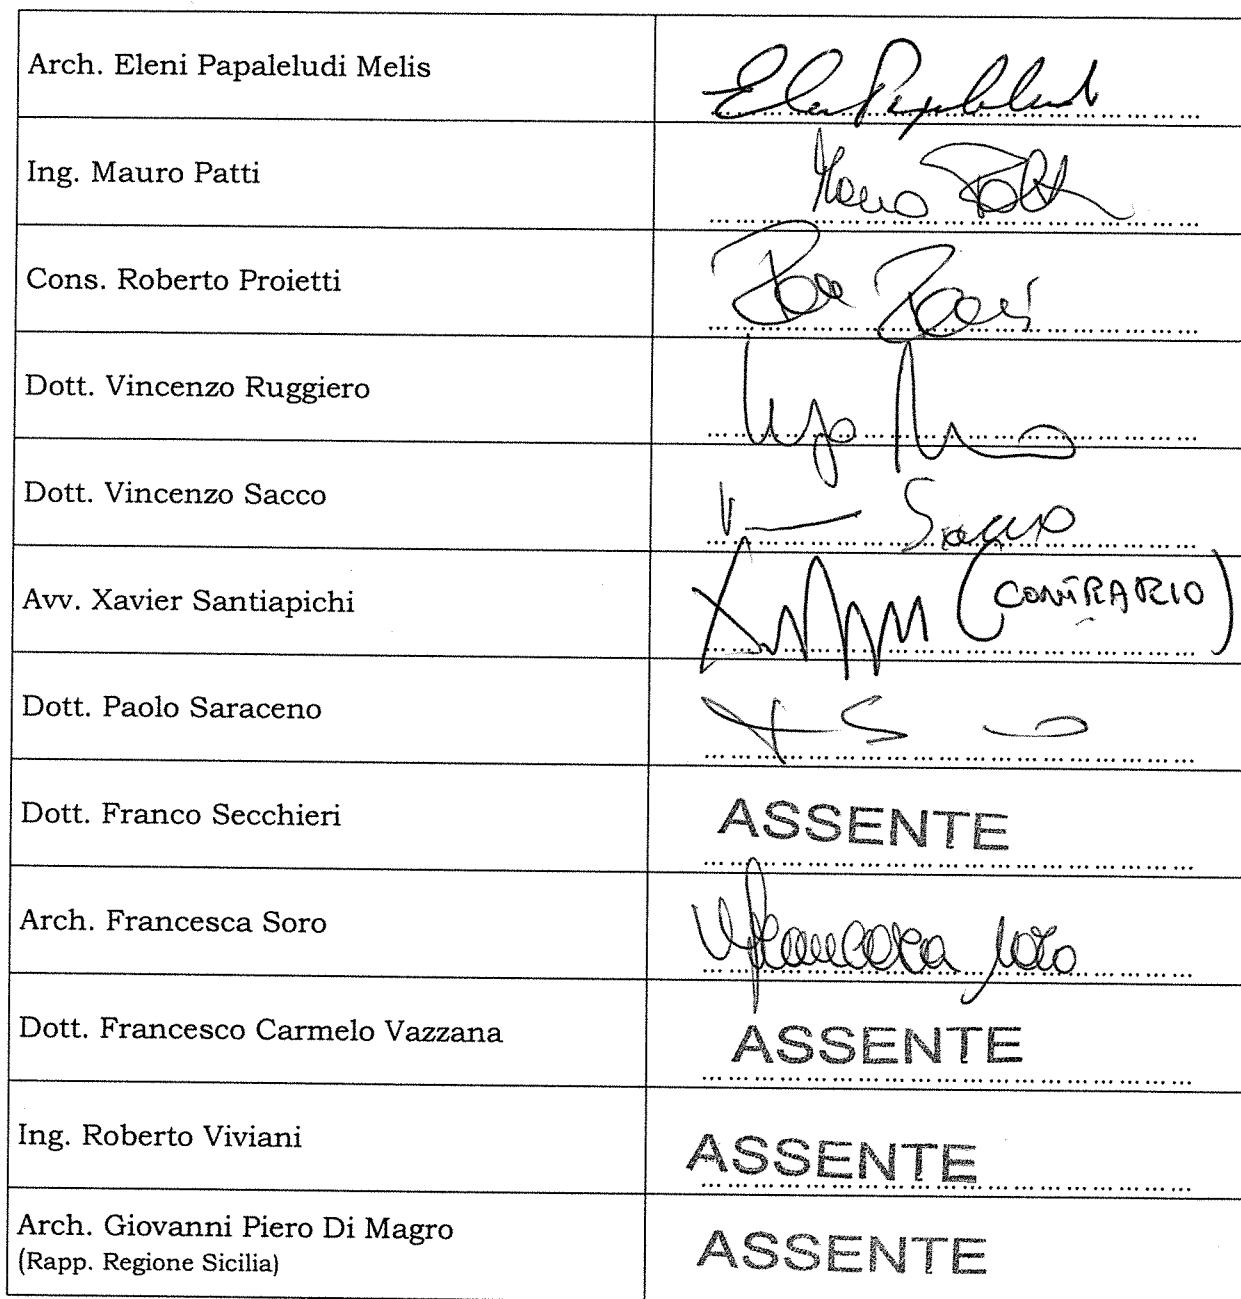 Arch. Eleni Papaleludi Melis
Ing. Mauro Patti
Cons. Roberto Proietti
Dott. Vincenzo Ruggiero
Dott. Vincenzo Sacco
Sacco
Avv. Xavier Santiapichi
(CONTRARIO)
Dott. Paolo Saraceno
Dott. Franco Secchieri
ASSENTE
Arch. Francesca Soro
Francesca Soro
Dott. Francesco Carmelo Vazzana
ASSENTE
Ing. Roberto Viviani
ASSENTE
Arch. Giovanni Piero Di Magro
(Rapp. Regione Sicilia)
ASSENTE